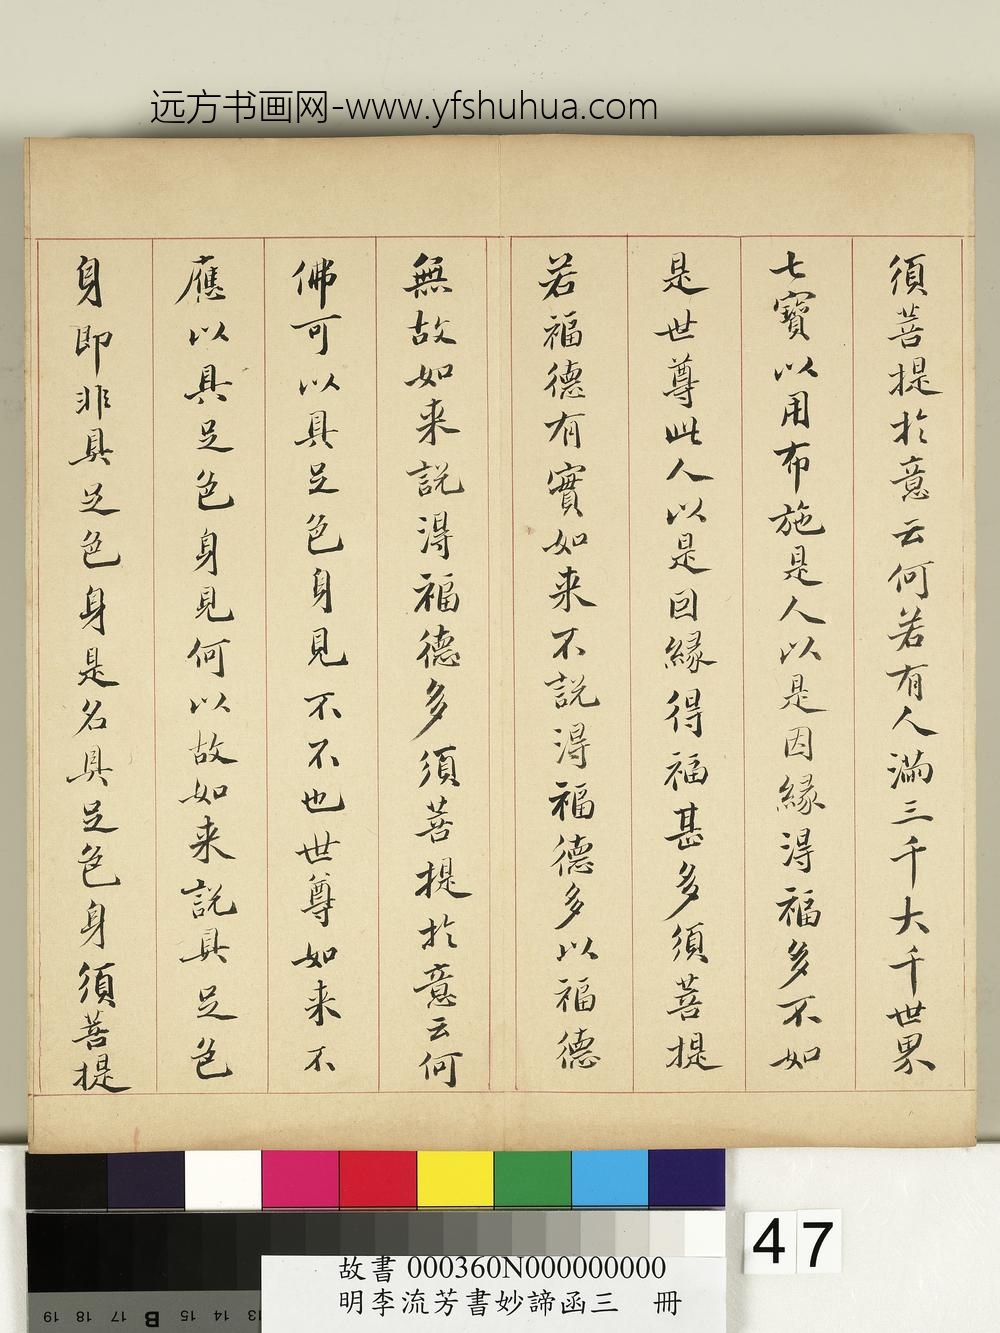 远方书画网-www.yfshuhua.com
須菩提於意云何若有人滿三千大千世界
七寶以用布施是人以是因緣得福多不如
是世尊此人以是因緣得福甚多須菩提
若福德有實如来不說得福德多以福德
無故如来說得福德多須菩提於意云何
佛可以具足色身見不不也世尊如来不
應以具足色身見何以故如来說具足色
身即非具足色身是名具足色身須菩提
47
故書 000360N000000000
明李流芳書妙諦函三 冊
19 18 17 B 15 14 13